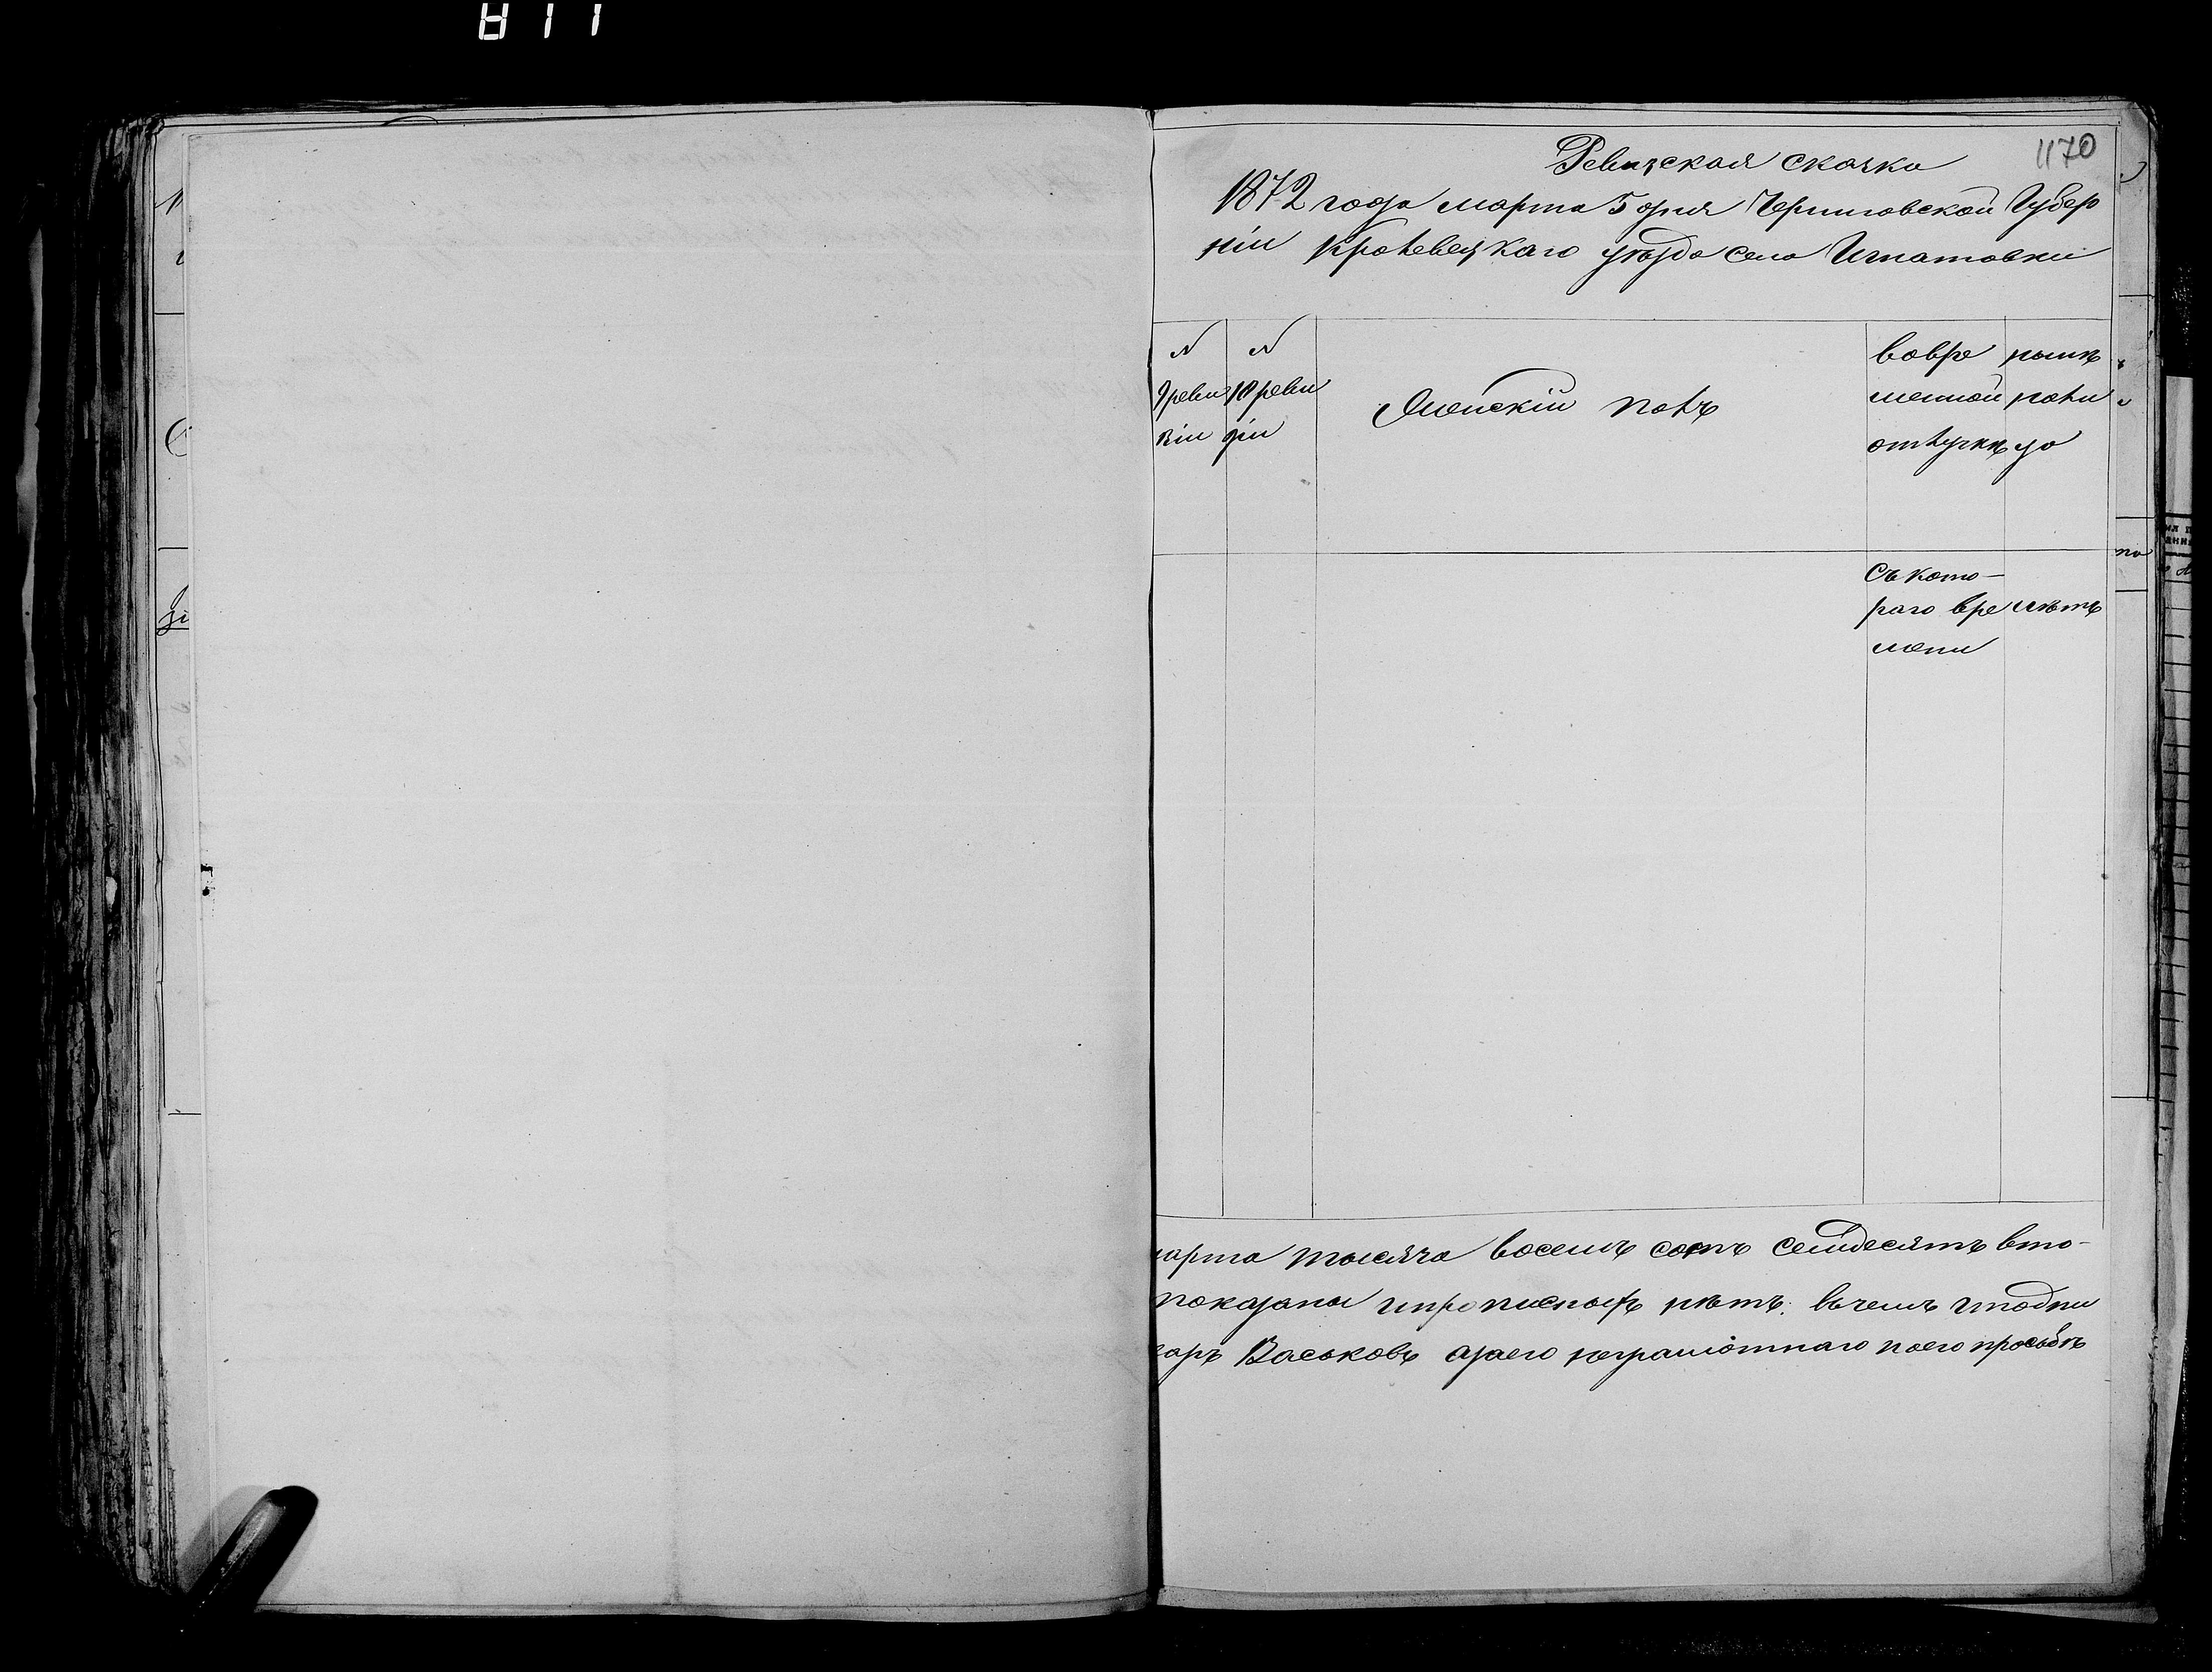 1170
Ревизская сказка
1872 года марта 5 дня Черниговской Губер
ніи Кролевецкаго уѣзда села Игнатовки
N
9 реви
зіи
N
10 реви
зіи
Женскій полъ
вовре
менной
отлучкѣ
нынѣ
на лицо
Съ кото-
раго вре
мени
лѣтъ
марта тысяча восемъ сотъ семдесятъ вто-
показаны ипрописныхъ нѣтъ. въчемъ иподпи
Васьковъ азаего неграмотнаго поего просьбѣ